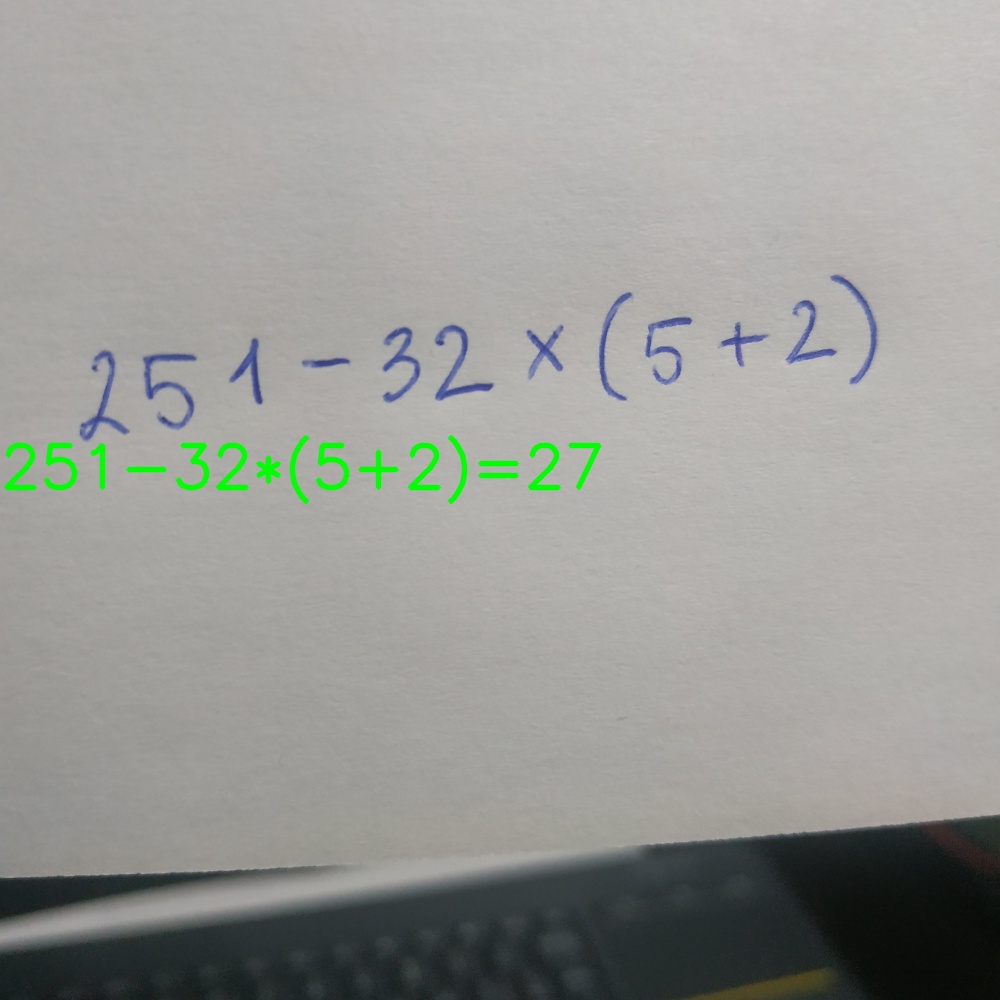 251 - 32 × (5 + 2)
251-32*(5+2)=27